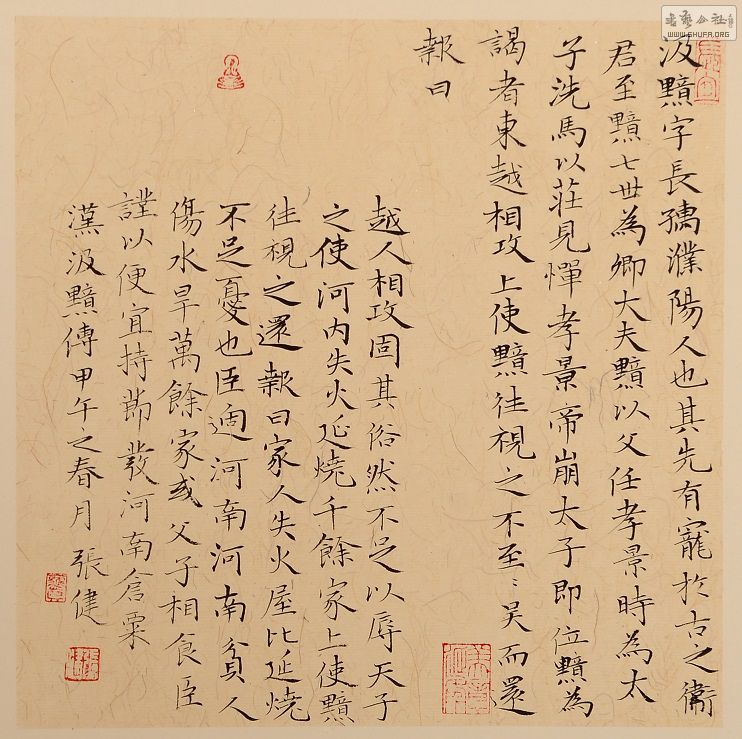 汲黯字長孺濮陽人也其先有寵於古之衞
君至黯七世為卿大夫黯以父任孝景時為太
子洗馬以莊見憚孝景帝崩太子即位黯為
謁者東越相攻上使黯往視之不至〻吳而還
報曰
越人相攻固其俗然不足以辱天子
之使河内失火延燒千餘家上使黯
往視之還報曰家人失火屋比延燒
不足憂也臣過河南河南貧人
傷水旱萬餘家或父子相食臣
謹以便宜持節發河南倉粟
漢汲黯傳甲午之春月 張健
書藝公社
WWW.SHUFA.ORG